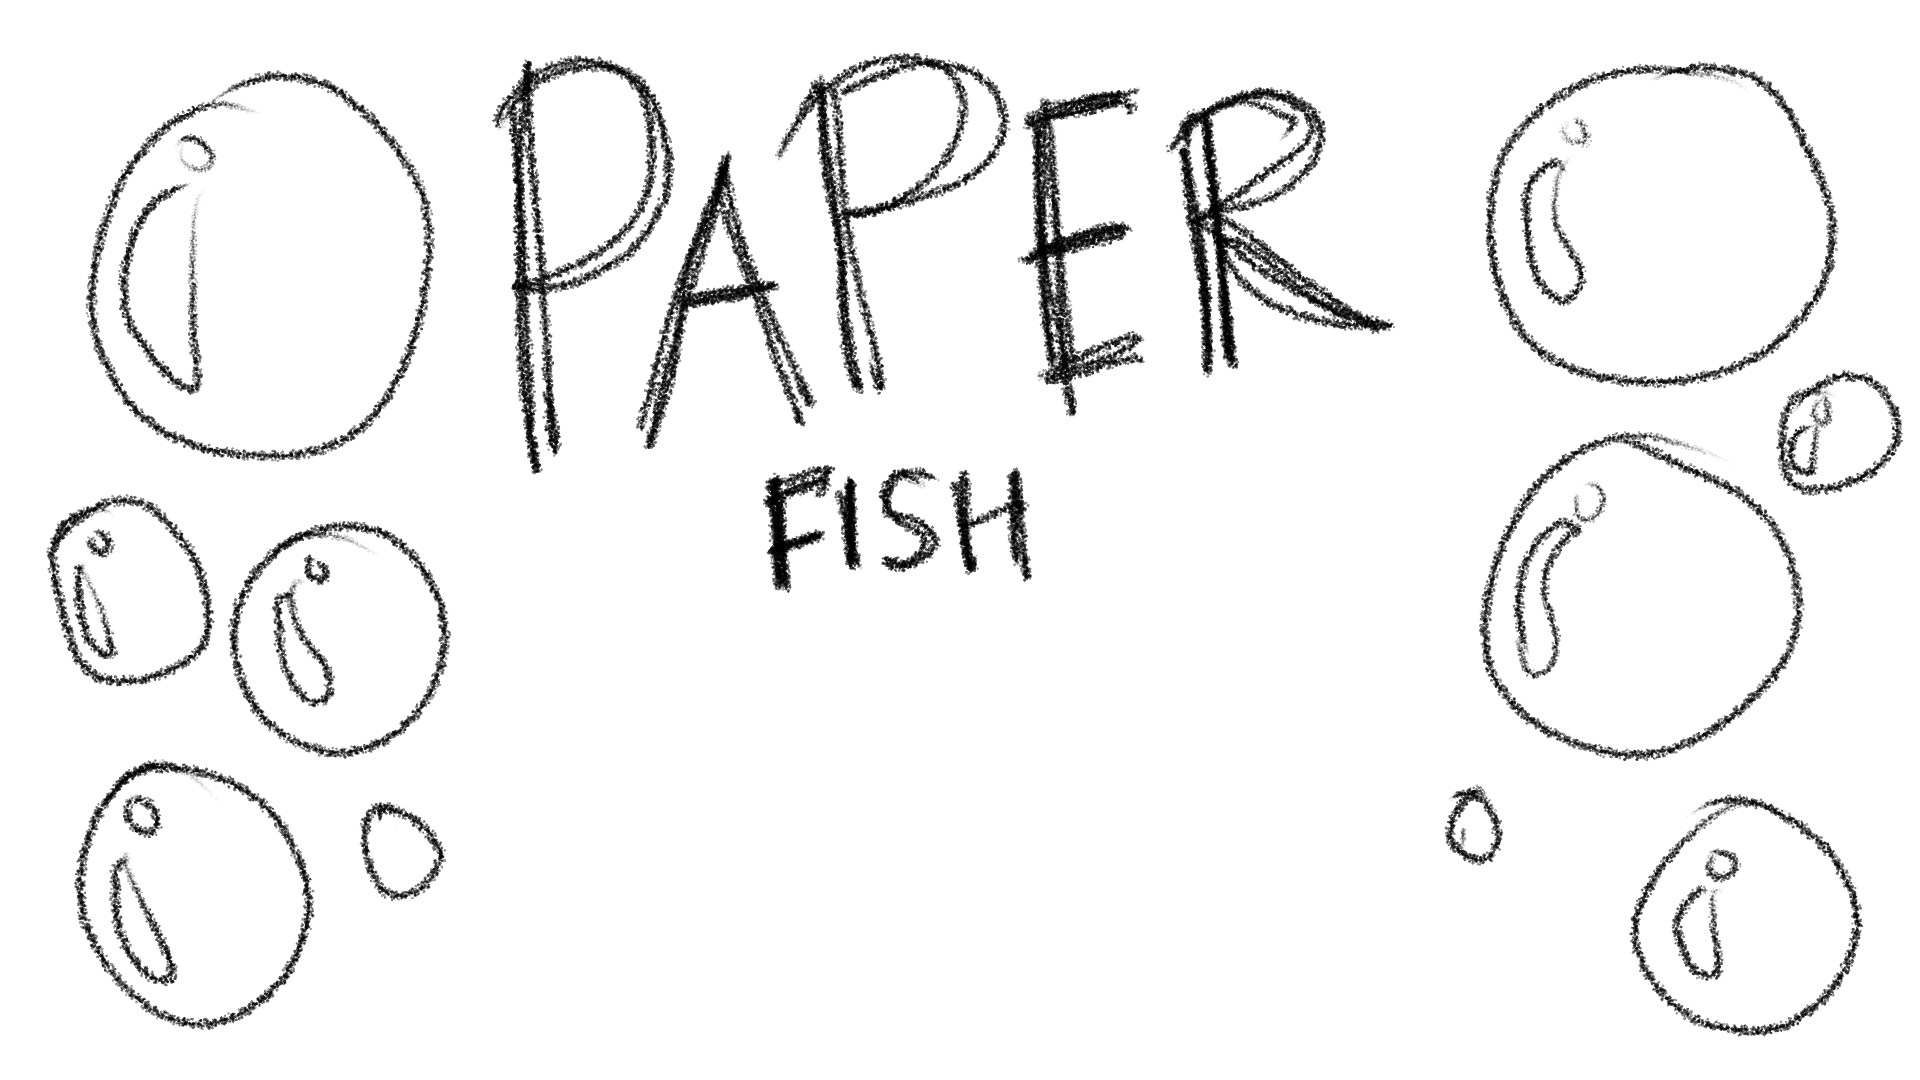 PAPER
FISH